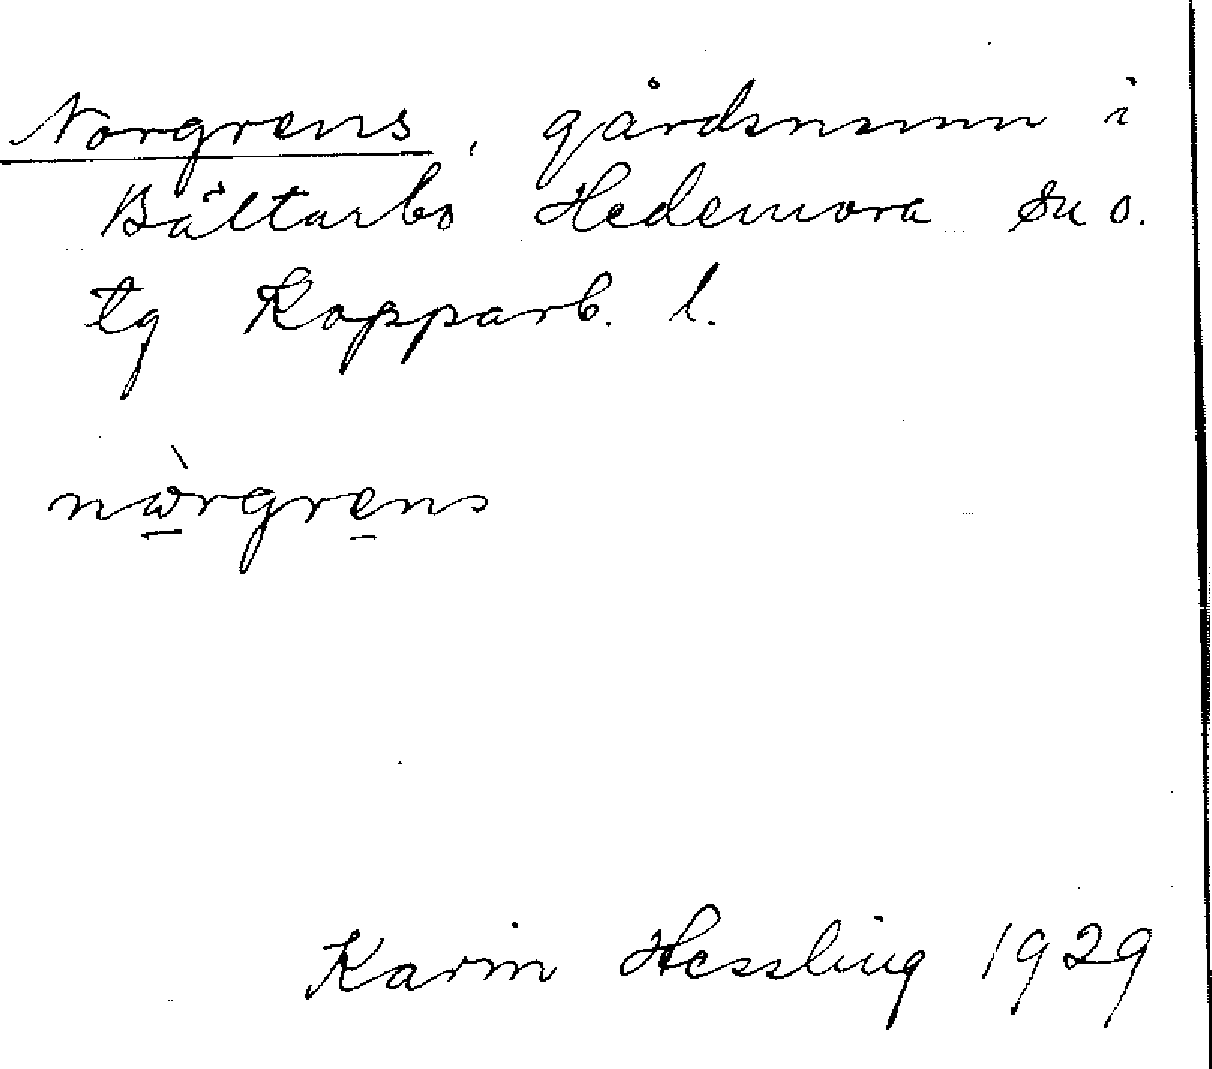 Norgrens, gårdsnamn i
Bältarbo Hedemora sn o.
tg Kopparb. l.
nẁrgrens
Karin Hessling 1929